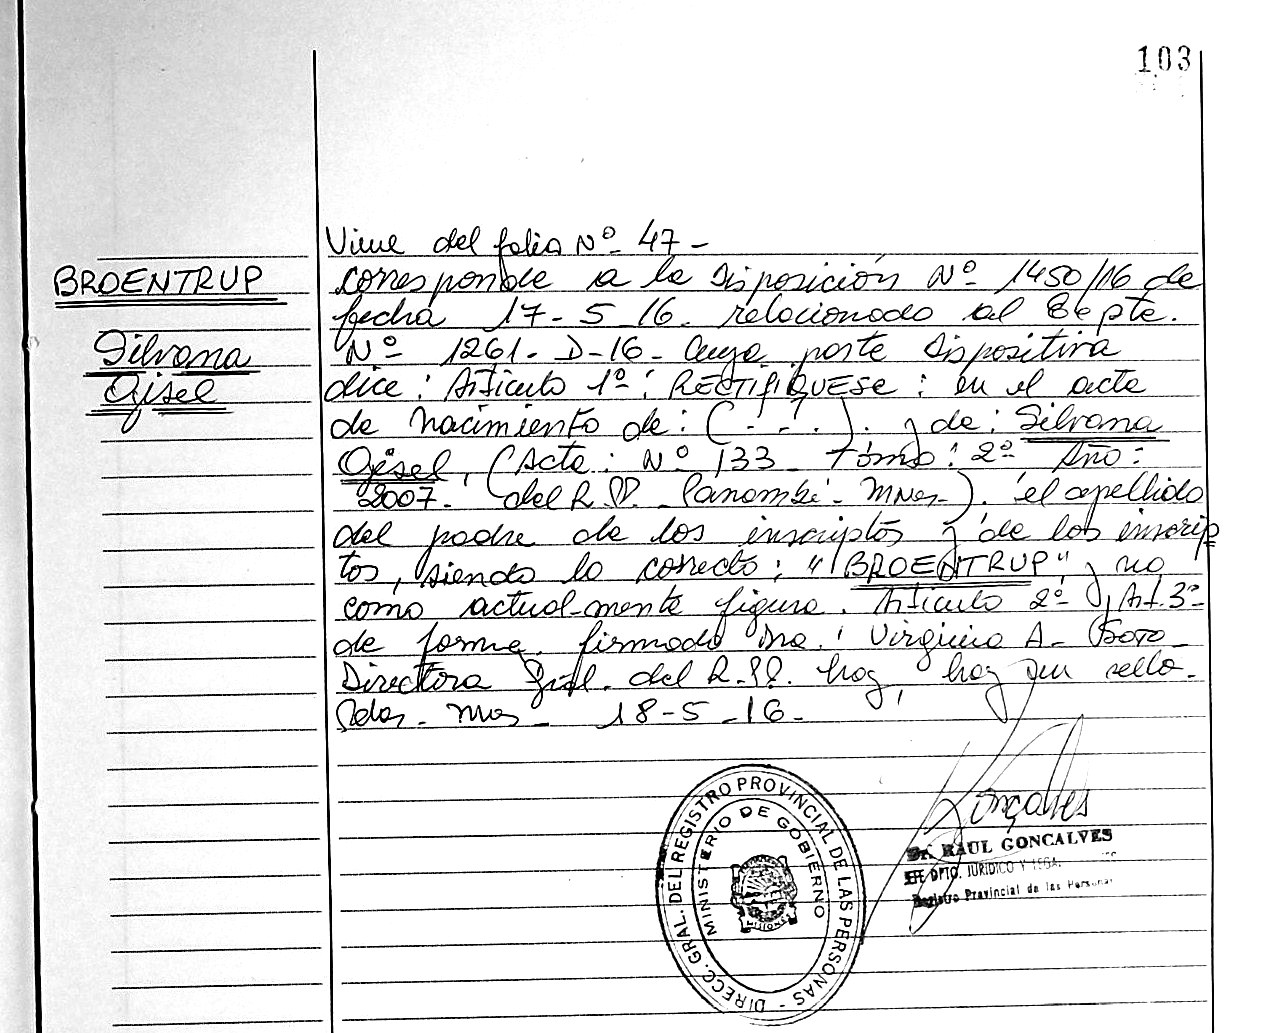 103
BROENTRUP
Silvana
Gisel
Viene del folio Nº 47-
corresponde a la Disposición Nº 1450/16 de
fecha 17-5-16. relacionado al Expte.
Nº 1261-D-16- Cuya parte dispositiva
dice: Artículo 1º: RECTIFIQUESE: en el acta
de nacimiento de: (- . - .). y de: Silvana
Gisel, (Acta: Nº 133 Tomo: 2º Año:
2007. del R.P. Panambí- Mnes-). el apellido
del padre de los inscriptos y de los inscrip
tos, siendo lo correcto: "BROENTRUP" y no
como actualmente figura. Artículo 2º y Art. 3º-
de forma. firmado Dra. Virginia A.
Directora Gral. del R.P. hay, hay un sello-
Pdas- Mnes- 18-5-16-
DIRECC. GRAL. DEL REGISTRO PROVINCIAL DE LAS PERSONAS -
MINISTERIO DE GOBIERNO
MISIONES
Gonçalves
Dr. RAUL GONCALVES
JEFE DPTO. JURIDICO Y
Registro Provincial de las Personas